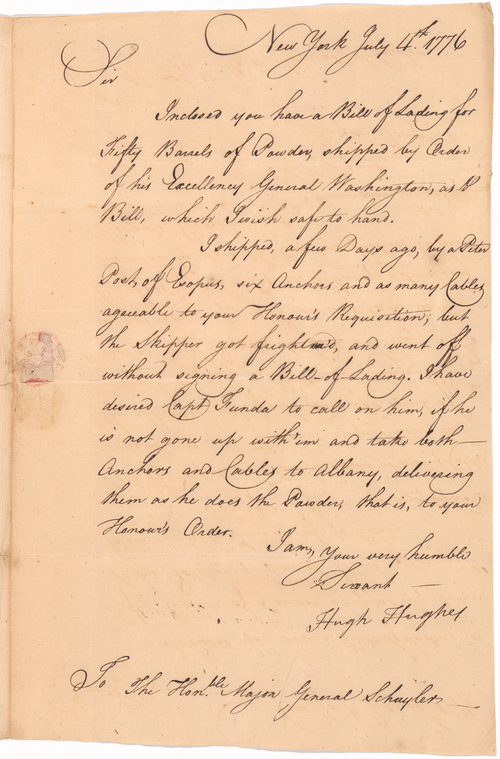 New York July 4.th 1776
Sir
Inclosed you have a Bill of Lading for
Fifty Barrels of Powder, shipped by Order
of his Excellency General Washington, as
Bill, which I wish safe to hand.
I shipped, a few Days ago, by a Peter
Post, of Esopus, six Anchors and as many Cables
agreeable to your Honour's Requisition; but
the Skipper got frightned, and went off
without signing a Bill-of-Lading. I have
desired Capt Funda to call on him, if he
is not gone up with 'em and take both
Anchors and Cables to Albany, delivering
them as he does the Powder; that is, to your
Honour's Order.
I am, Your very humble
Servant
Hugh Hughes
To The Hon.ble Major General Schuyler